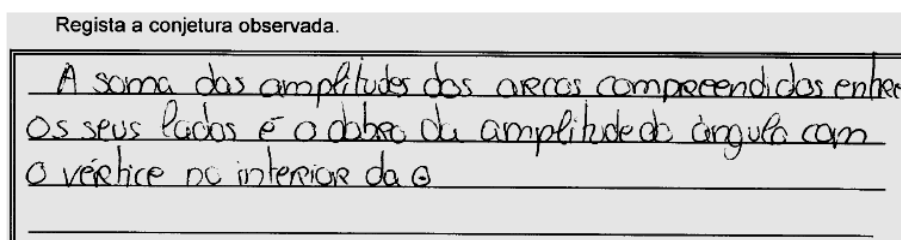 Regista a conjetura observada.
A soma das amplitudes dos arcos compreendidos entre
os seus lados é o dobro da amplitude do ângulo com
o vértice no interior da